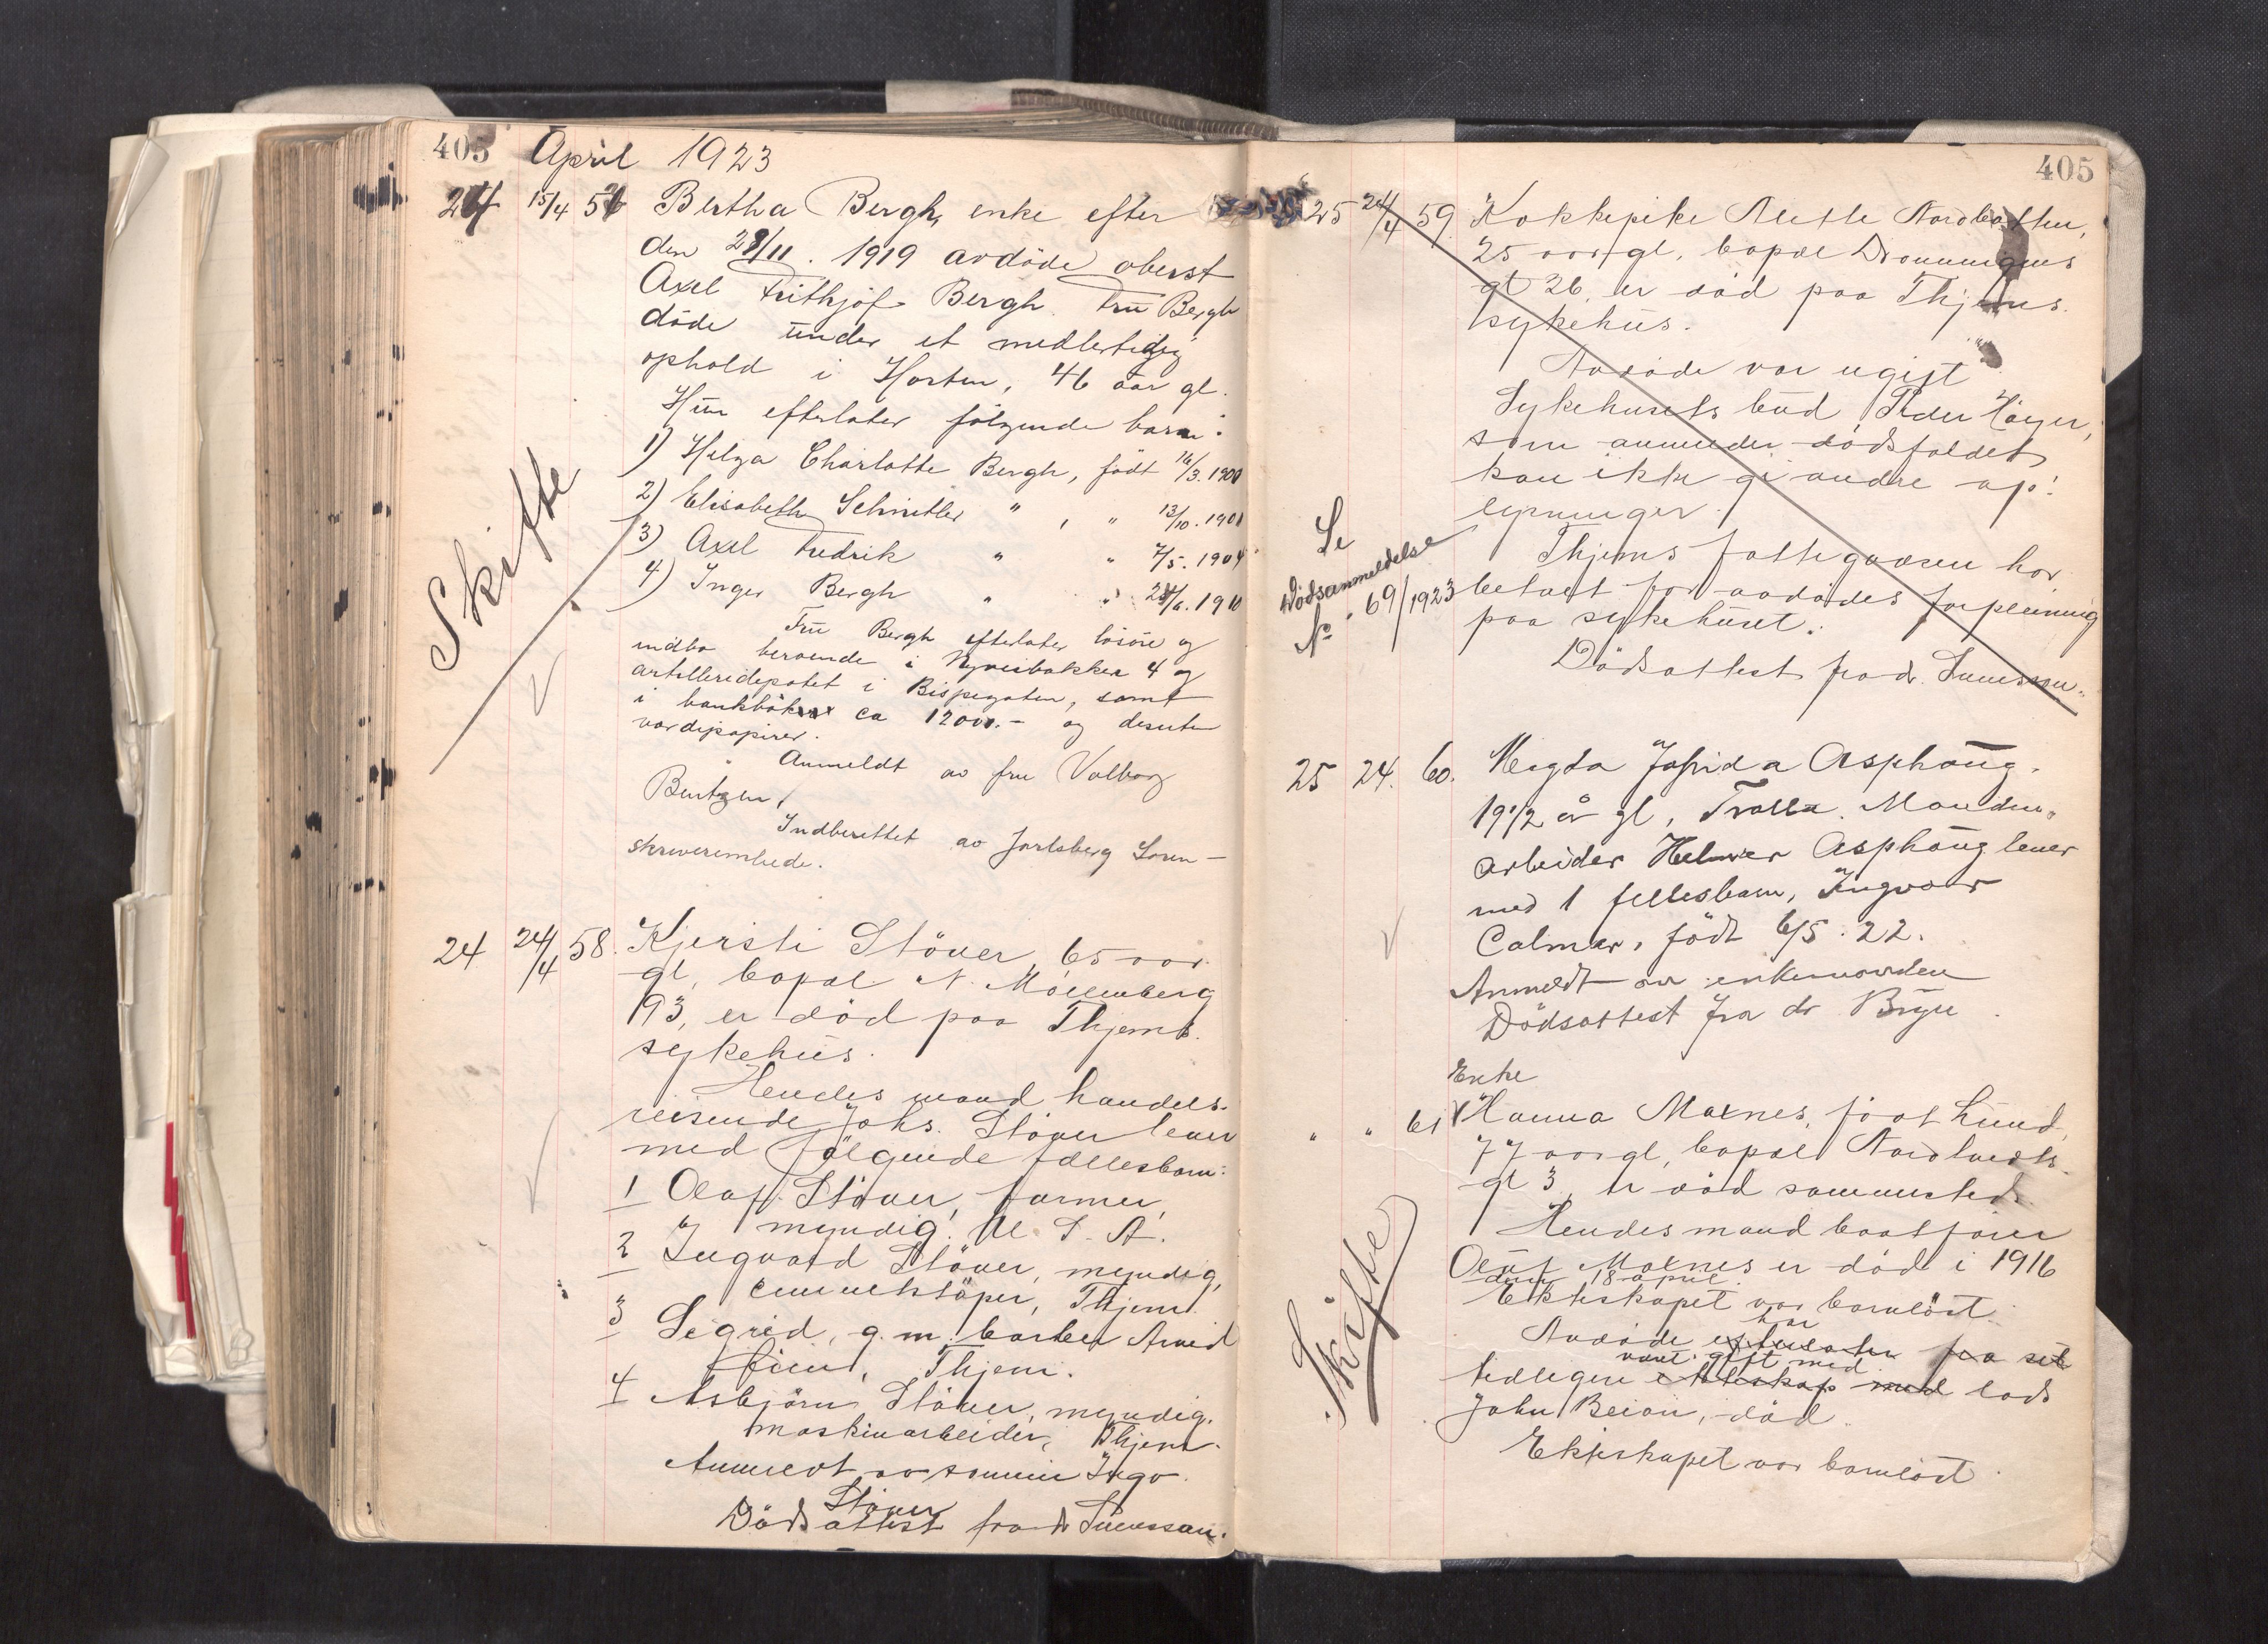 405 April 1923
24 15/4 56 Bertha Bergh, enke efter
den 28/11. 1919 avdöde oberst
Axel Frithjof Bergh. Fru Bergh
döde under et midlertidig
ophold i Horten, 46 aar gl.
Hun efterlater fölgende barn:
1) Helga Charlotte Bergh, födt 16/3. 1900
2) Elisabeth Schnitler " , " 13/10. 1901
3) Axel Fredrik " " 7/5. 1904
4) Inger Bergh " " 24/6. 1910
Skifte
Fru Bergh efterlater lösöre og
indbo beroende i Nyveibakken 4 og
artilleridepotet i Bispegaten, samt
i bankböker ca 12000.- og desuten
værdipapirer.
Anmeldt av fru Valborg
Berntzen,
Indberettet av Jarlsberg Soren-
skriverembede.
24 24/4 58. Kjersti Stöver, 65 aar
gl, bopæl N. Möllenberg
93, er död paa Thjems
sykehus.
Hendes mand handels-
reisende Johs. Stöver lever
med fölgende fællesbarn:
1 Olaf Stöver, farmer,
myndig. U. S. A.
2 Ingvard Stöver, myndig,
Thjem.
3 Sigrid, g. m. barber Arvid
Thjem.
4 Asbjörn Stöver, myndig.
maskinarbeider, Thjem.
Anmeldt av sönnen Ingv.
Stöver
Dödsattest fra dr
405
25 24/4 59. Kokkepike Mette Nordbotten,
25 aar gl, bopæl Dronningens
gt 26, er död paa Thjems
sykehus.
Avdöde var ugift
Sykehusets bud Peder Höyer,
som anmelder dödsfaldet
kan ikke gi andre op-
lysninger.
Se
Dödsanmeldelse
No 69/1923
Thjems fattigvæsen har
betalt for avdödes forpleining
paa sykehuset.
Dödsattest fra dr.
25 24. 60. Magda Jofrida Asphaug.
19 1/2 år gl, Trolla. Manden,
arbeider Helmer Asphaug lever
med 1 fellesbarn, Ingvar
Calmar, födt 6/5. 22.
Anmeldt av enkemanden
Dödsattest fra dr Bryn.
Enke
" " 61 Hanna Moxnes, föot Lund,
77 aar gl, bopæl Nordlands
gt 3, er död sammesteds.
Hendes mand baatförer
Oluf Moxnes er död i 1916
den 18 april.
Ekteskapet var barnlöst.
har
Avdöde efterlater fra sit
vært gift med
tidligere ekteskap med lods
John Beian, död.
Ekteskapet var barnlöst.
Skifte